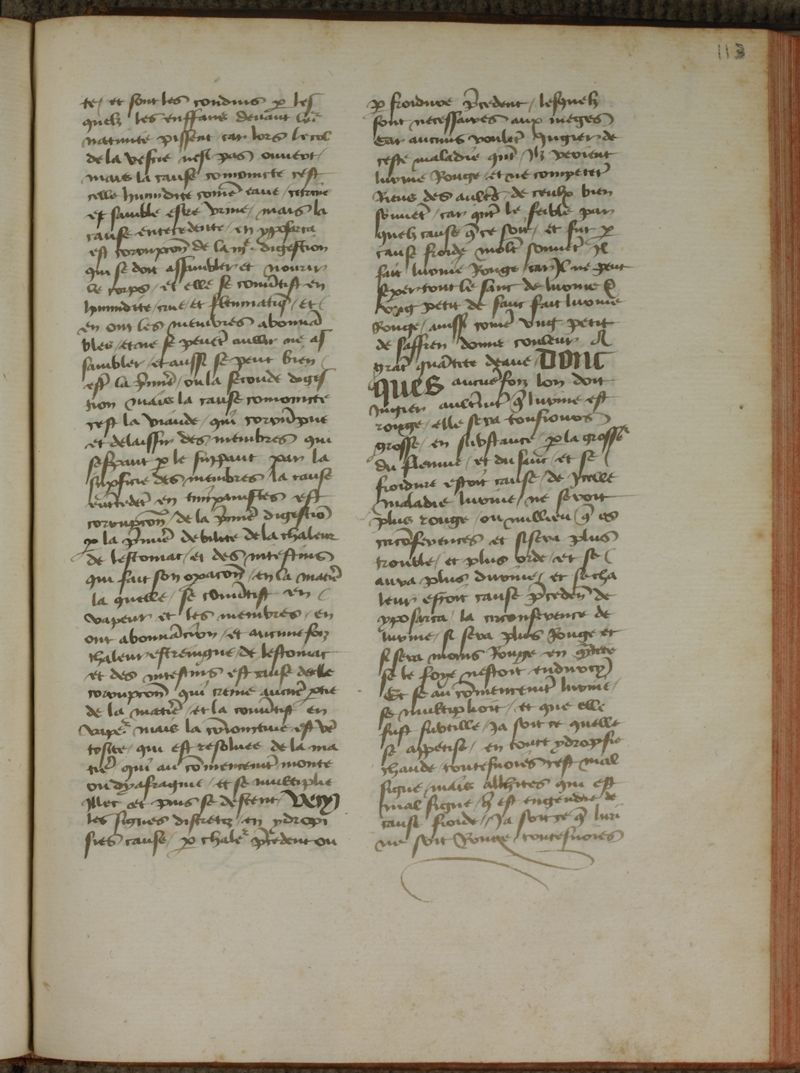 113
te / et sont les conduis p les
quelz les enffans devant leur
nativite pissent / car lors le col
de la vescie nest pas ouvert /
mais la cause conioincte cest
celle humidite come eaue / citrine
et samble estre urine / mais la
cause entecedente / en yposarca
est corrupcon de la .. digestion
qui se doit assambler et nourir
le corps / et elle se convertist en
humidite / crue / et fleumatiq / et
en ont les membres abonna
bles / et ne se pevet ne as
sambler / et aussi se peut bien
estre la pmiere / ou la seconde diges
tion mais la cause conioincte
cest la viande / qui corrumpue
et delaissie des membres qui
p le par la
supficie des membres la cause
entecedet en timpanistes est
corrupcon / de la pmiere digestio
p la pmiere debilite de la chaleur
de lestomac / et des intestins
qui fait son opacon / en la matiere
la quelle / se convertist en
vapeur et les membres / en
ont abonnacion / et aucune foiz
chaleur estreingne / de lestomac
et des intestins est cause de le
corrupcon qui crome aucune ptie
de la matiere / et la convertist en
vapeur mais la conioincte est ve
tosite / qui est resoluee de la ma
tiere qui au comencement monte
ou dyafragme / et se multiplie
illec et puis se descent / Vecy
les signes discretz / en ydropi
sies cause / p chaleur pcedent ou
p froidure pcedent / lesquelz
sont necessaires aux meges
Car aucuns voulet iugier de
ceste maladie quat ilz veoient
lurine Rouge / et ne competet
Riens des aultres de ceulx bien
souvet / car quat le feible par
quelz cause q ce soit / et fut p
cause froide molt souvet il
fait lurine Rouge / car il ne peut
seper tout le sanc de lurine &
ung petit de sanc fait lurine
Rouge / aussi come ung petit
de saffren donne couleur / A
grat quatite deaue / Donc
ques aucune foiz lon doit
iugier aultremet q lurine est
rouge / elle sera tousiours
grosse / en substance / p la grosse
du fleume / et du sanc et se
froidure estoit cause / de icelle
maladie lurine / ne seroit
plus rouge / ou millieu q es
circonferences et si sera plus
trouble / et plus orde / et se
aura plus durine / et se cha
leur estoit cause pceden de
yposarca / la circonference de
lurine / si sera plus Rouge et
si sera moins Rouge en
se le foye nestoit endurcy
Et se au comencement lurine /
se multiplioit / et que elle
fust subtille / Ja soit ce quelle
se appetise / en toute ydropysie
chaude / toutesuoies cest mal
signe / mais alchites qui est
mal signe / sil est engendre de
cause froide / Ja soit ce q luri
ne soit Rouge toutesuoies